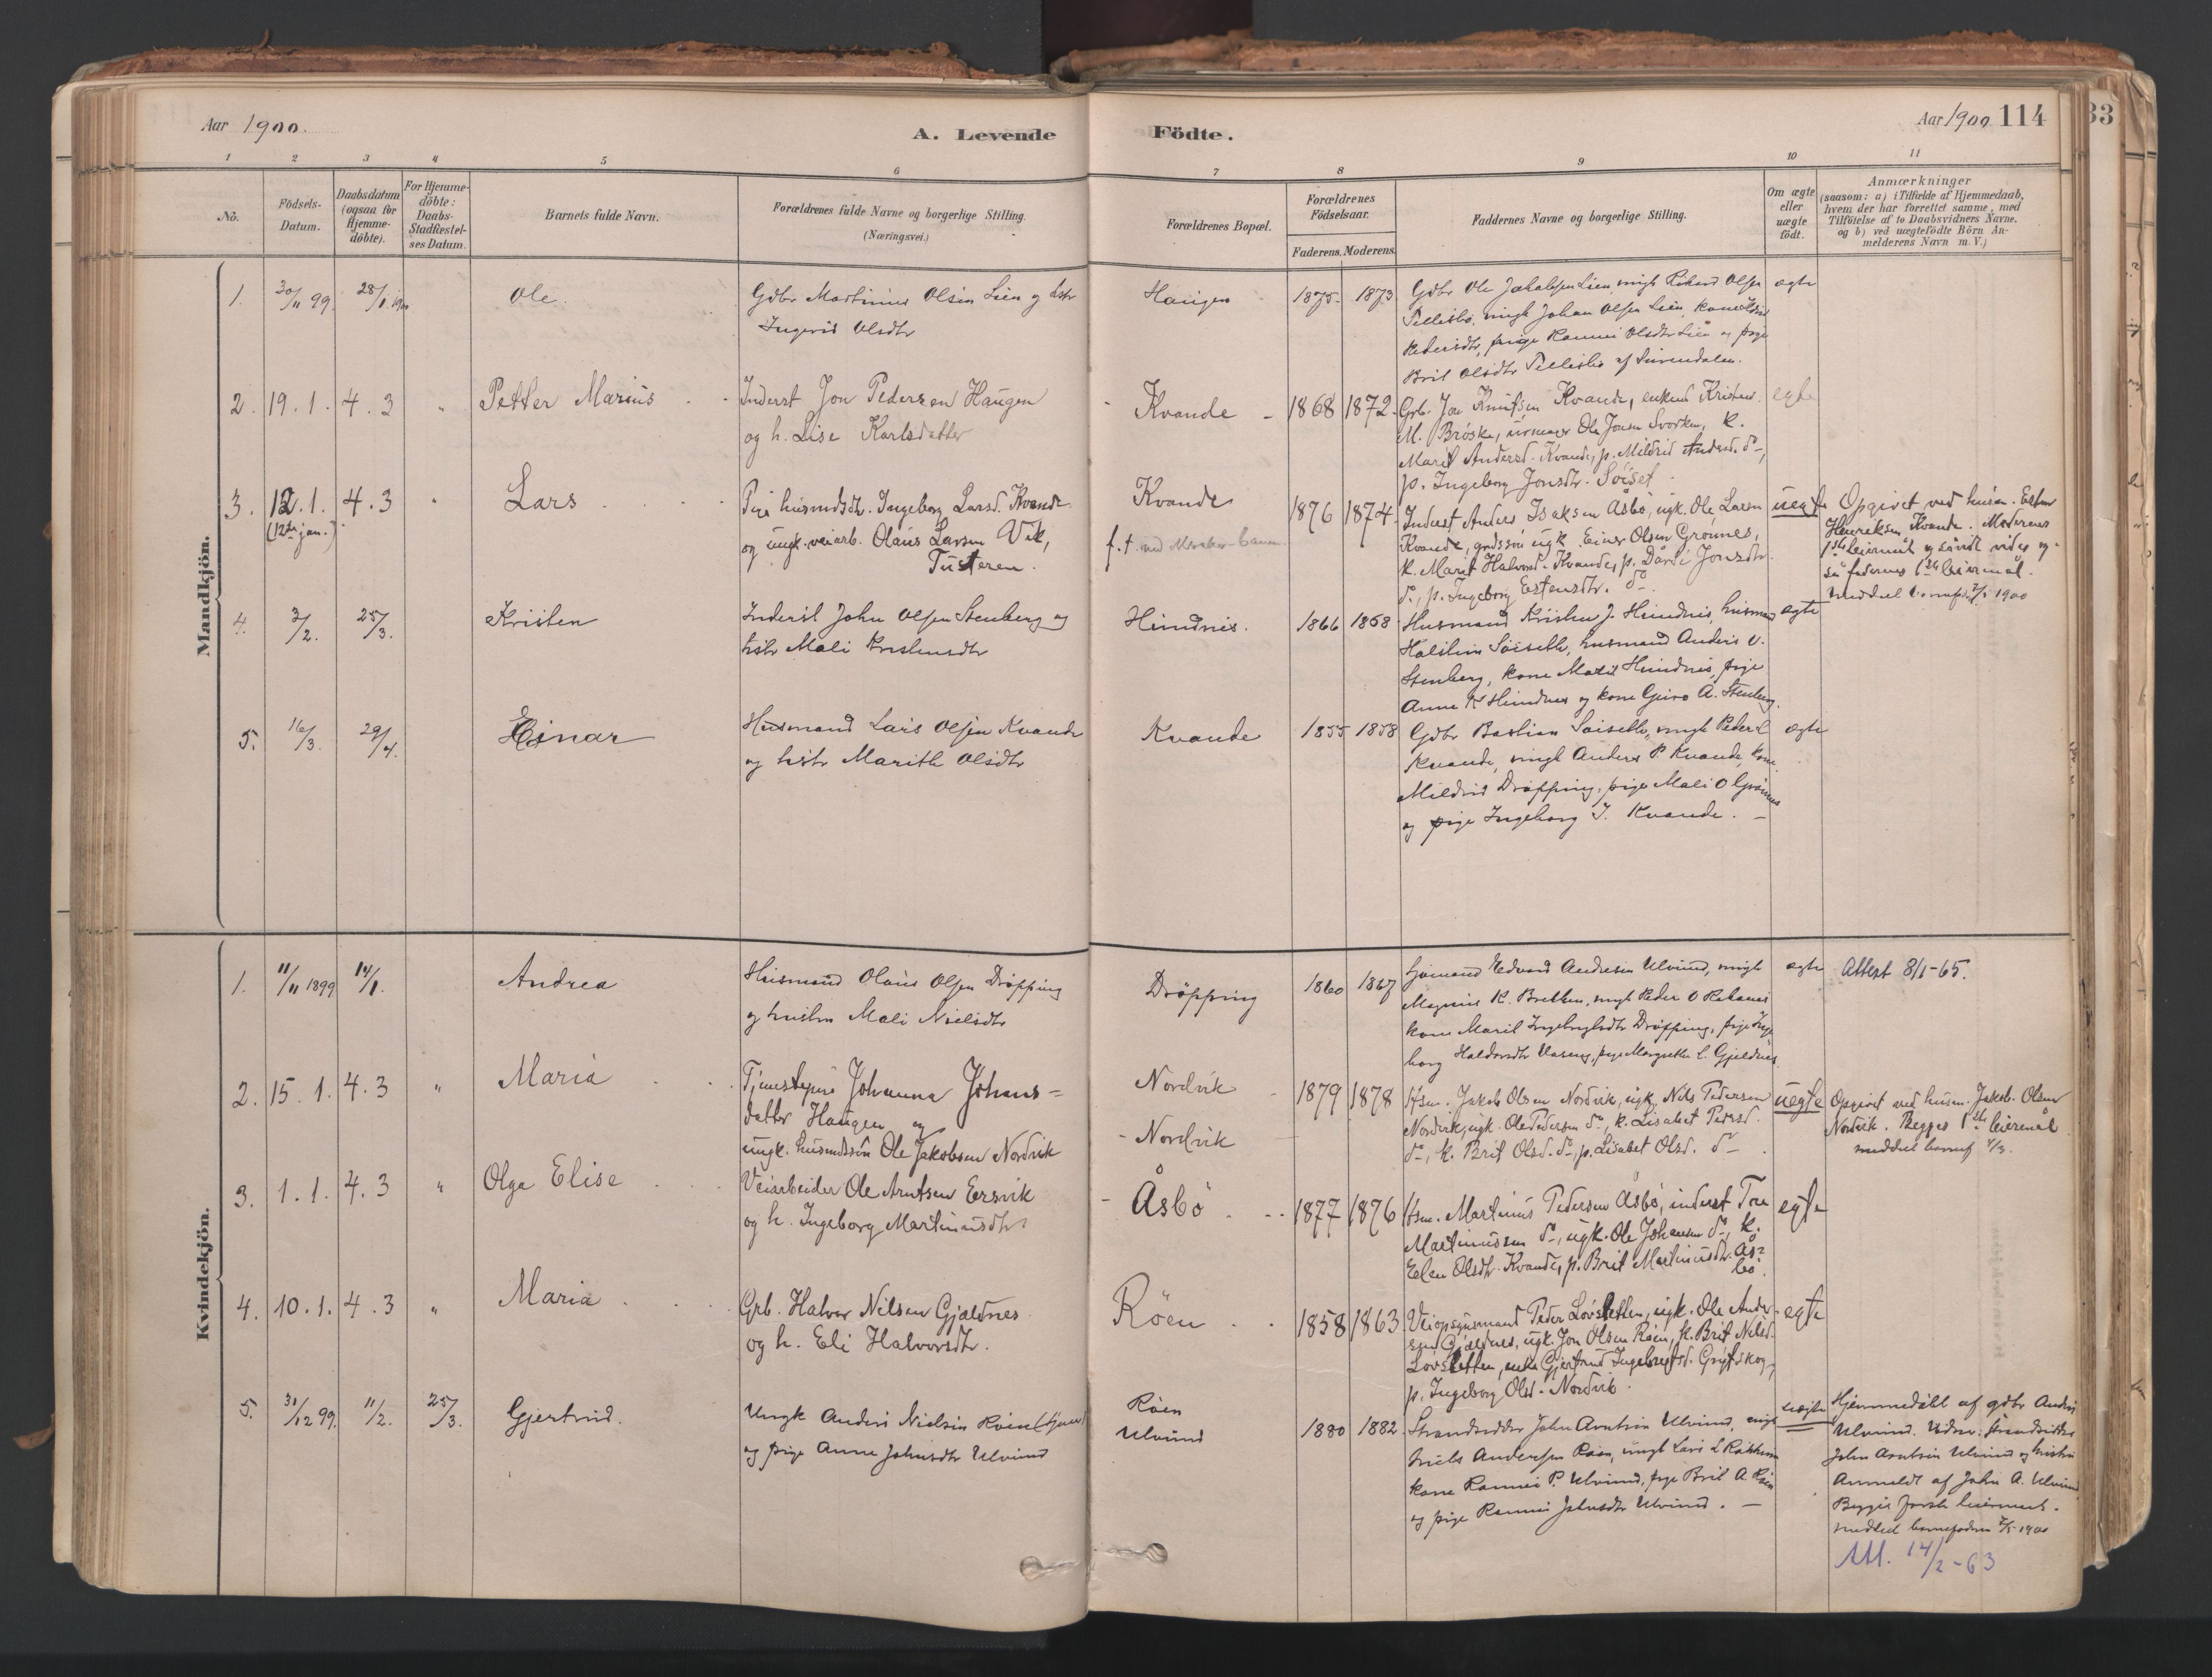 Aar 1900.
A. Levende Födte.
Aar 1900 114
33
1 2 3 4 5 6 7 8 9 10 11
No.
Födsels-
Datum.
Daabsdatum
(ogsaa for
Hjemme-
döbte).
For Hjemme-
döbte:
Daabs-
Stadfæstel-
ses Datum.
Barnets fulde Navn.
Forældrenes fulde Navne og borgerlige Stilling.
(Næringsvei.)
Forældrenes Bopæl.
Forældrenes
Födselsaar.
Faderens. Moderens.
Faddernes Navne og borgerlige Stilling.
Om ægte
eller
uægte
födt.
Anmærkninger
(saasom: a) i Tilfælde af Hjemmedaab,
hvem der har forrettet samme, med
Tilföielse af to Daabsvidners Navne.
og b) ved uægtefödte Börn An-
melderens Navn m. V.)
Mandkjön.
1. 30/11 99. 28/1 1900 Ole.
Gdbr Martinus Olsen Lien og hstr
Ingerid Olsdtr
Haugen 1875 1873
Gdbr Ole Jakobsen Lien, ungk Rikard Olsen
ungk Johan Olsen Lien, kone
Pedersdtr, pige Rannei Olsdtr Lien og pige
Brit Olsdtr af Surendalen.
ægte
2. 19.1. 4.3 " Petter Marius
Inderst Jon Pedersen Haugen
og h. Lise Karlsdatter
Kvande 1868 1872
Grb. Jon Knutsen Kvande, enkem. Kristen
M. Brøske, urmager Ole Jonsen Svorken, k.
Marit Andersd. Kvande, p. Mildrid Andersd. do,
p. Ingeborg Jonsdtr. Söiset.
egte
3. 12.1. 4.3 " Lars
(12te jan.)
Pige husmdsdt. Ingeborg Larsd. Kvande
og ungk. veiarb. Olaus Larsen Vik,
Tusteren.
Kvande
f.t. ved Meraker-banen
1876 1874
Inderst Anders Isaksen Åsbö, ugk. Ole Larsen
Kvande, grdssön ugk. Einar Olsen Grönnes,
k. Marit Halvorsd. Kvande, p. Dårdi Jonsdtr.
do, p. Ingeborg Estensdtr. do
uegte
Opgivet ved husm. Esten
Henriksen Kvande. Moderens
1ste leiermål og såvidt vides og-
så faderens 1ste leiermål.
meddelt 1900
4. 3/2. 25/3. Kristen
Inderst John Olsen Stenberg og
hstr Mali Kristensdtr
Heindnis. 1866 1868
Husmand Kristen J. Heindnis, husmand
Halstein Söiseth, husmand Anders O.
Stenberg, kone Marit Heindnis, pige
Anne K Heindnes og kone Guro A. Stenberg.
ægte
5. 16/3. 29/4. Einar
Husmand Lars Olsen Kvande
og hstr Marith Olsdtr
Kvande 1855 1858
Gdbr Bastian Söiseth, ungk Peder L
Kvande, ungk Anders P. Kvande, kone
Mildrid Dröpping, pige Mali O Grönnes
og pige Ingeborg J. Kvande. —
ægte
Kvindekjön.
1. 11/11 1899 14/1. Andrea
Husmand Olaus Olsen Dröpping
og hustru Mali Nielsdtr
Dröpping 1860 1867
Edvard Andresen Ulvund, ungk
Magnus K. Bretten, ungk Peder O
kone Marit Ingebrigtsdtr Dröpping, pige Inge
borg Haldorsdtr pige Margrethe L. Gjeldnes
ægte
Attest 8/1-65.
2. 15.1. 4.3 " Maria
Tjenestepige Johanna Johans=
datter Haugen og
ungk. husmdssön Ole Jakobsen Nordvik
Nordvik
Nordvik
1879 1878
Hsm. Jakob Olsen Nordvik, ugk. Nils Pedersen
Nordvik, ugk. Ole Pedersen do, k. Lisabet Pedersd.
do, k. Brit Olsd. do, p. Lisabet Olsd. do
uegte
Opgivet ved husm. Jakob Olsen
Nordvik. Begges 1ste leiermål
meddelt
3. 1.1. 4.3 " Olga Elise
Veiarbeider Ole Arntsen Eersvik
og h. Ingeborg Martinusdtr
Åsbö 1877 1876
Hsm. Martinus Pedersen Åsbö, inderst Tore
Martinussen do, ugk. Ole Johansen do, k.
Eelen Olsdtr. Kvande, p. Brit Martinusdtr. Ås=
bö.
egte
4. 10.1. 4.3 " Maria
Grb. Halvor Nilsen Gjeldnes
og h. Eli Halvorsdtr.
Röen 1858 1863
Veiopsynsmand Peder Lövsletten, ugk. Ole Ander-
sen Gjeldnes, ugk. Jon Olsen Röen, k. Brit Nilsd.
Lövsletten, enke Gjertrud Ingebrigtsd. Grytskog,
p. Ingeborg Olsd. Nordvik.
egte
5. 31/12 99. 11/2. 25/3. Gjertrud.
Ungk Anders Nielsen Röen
og pige Anne Johnsdtr Ulvund
Röen
Ulvund
1880 1882
Strandsidder John Arntsen Ulvund, ungk
Niels Andersen Röen, ungk Lars L
kone Rannei P. Ulvund, pige Brit A. Röen
og pige Rannei Johnsdtr Ulvund. —
uægte
Hjemmedöbt af gdbr Anders
Ulvund. Vidner: strandsidder
John Arntsen Ulvund og hustru
Anmeldt af John A. Ulvund
Begges første leiermaal.
meddelt barnefaderen 1900
Att. 14/2-63